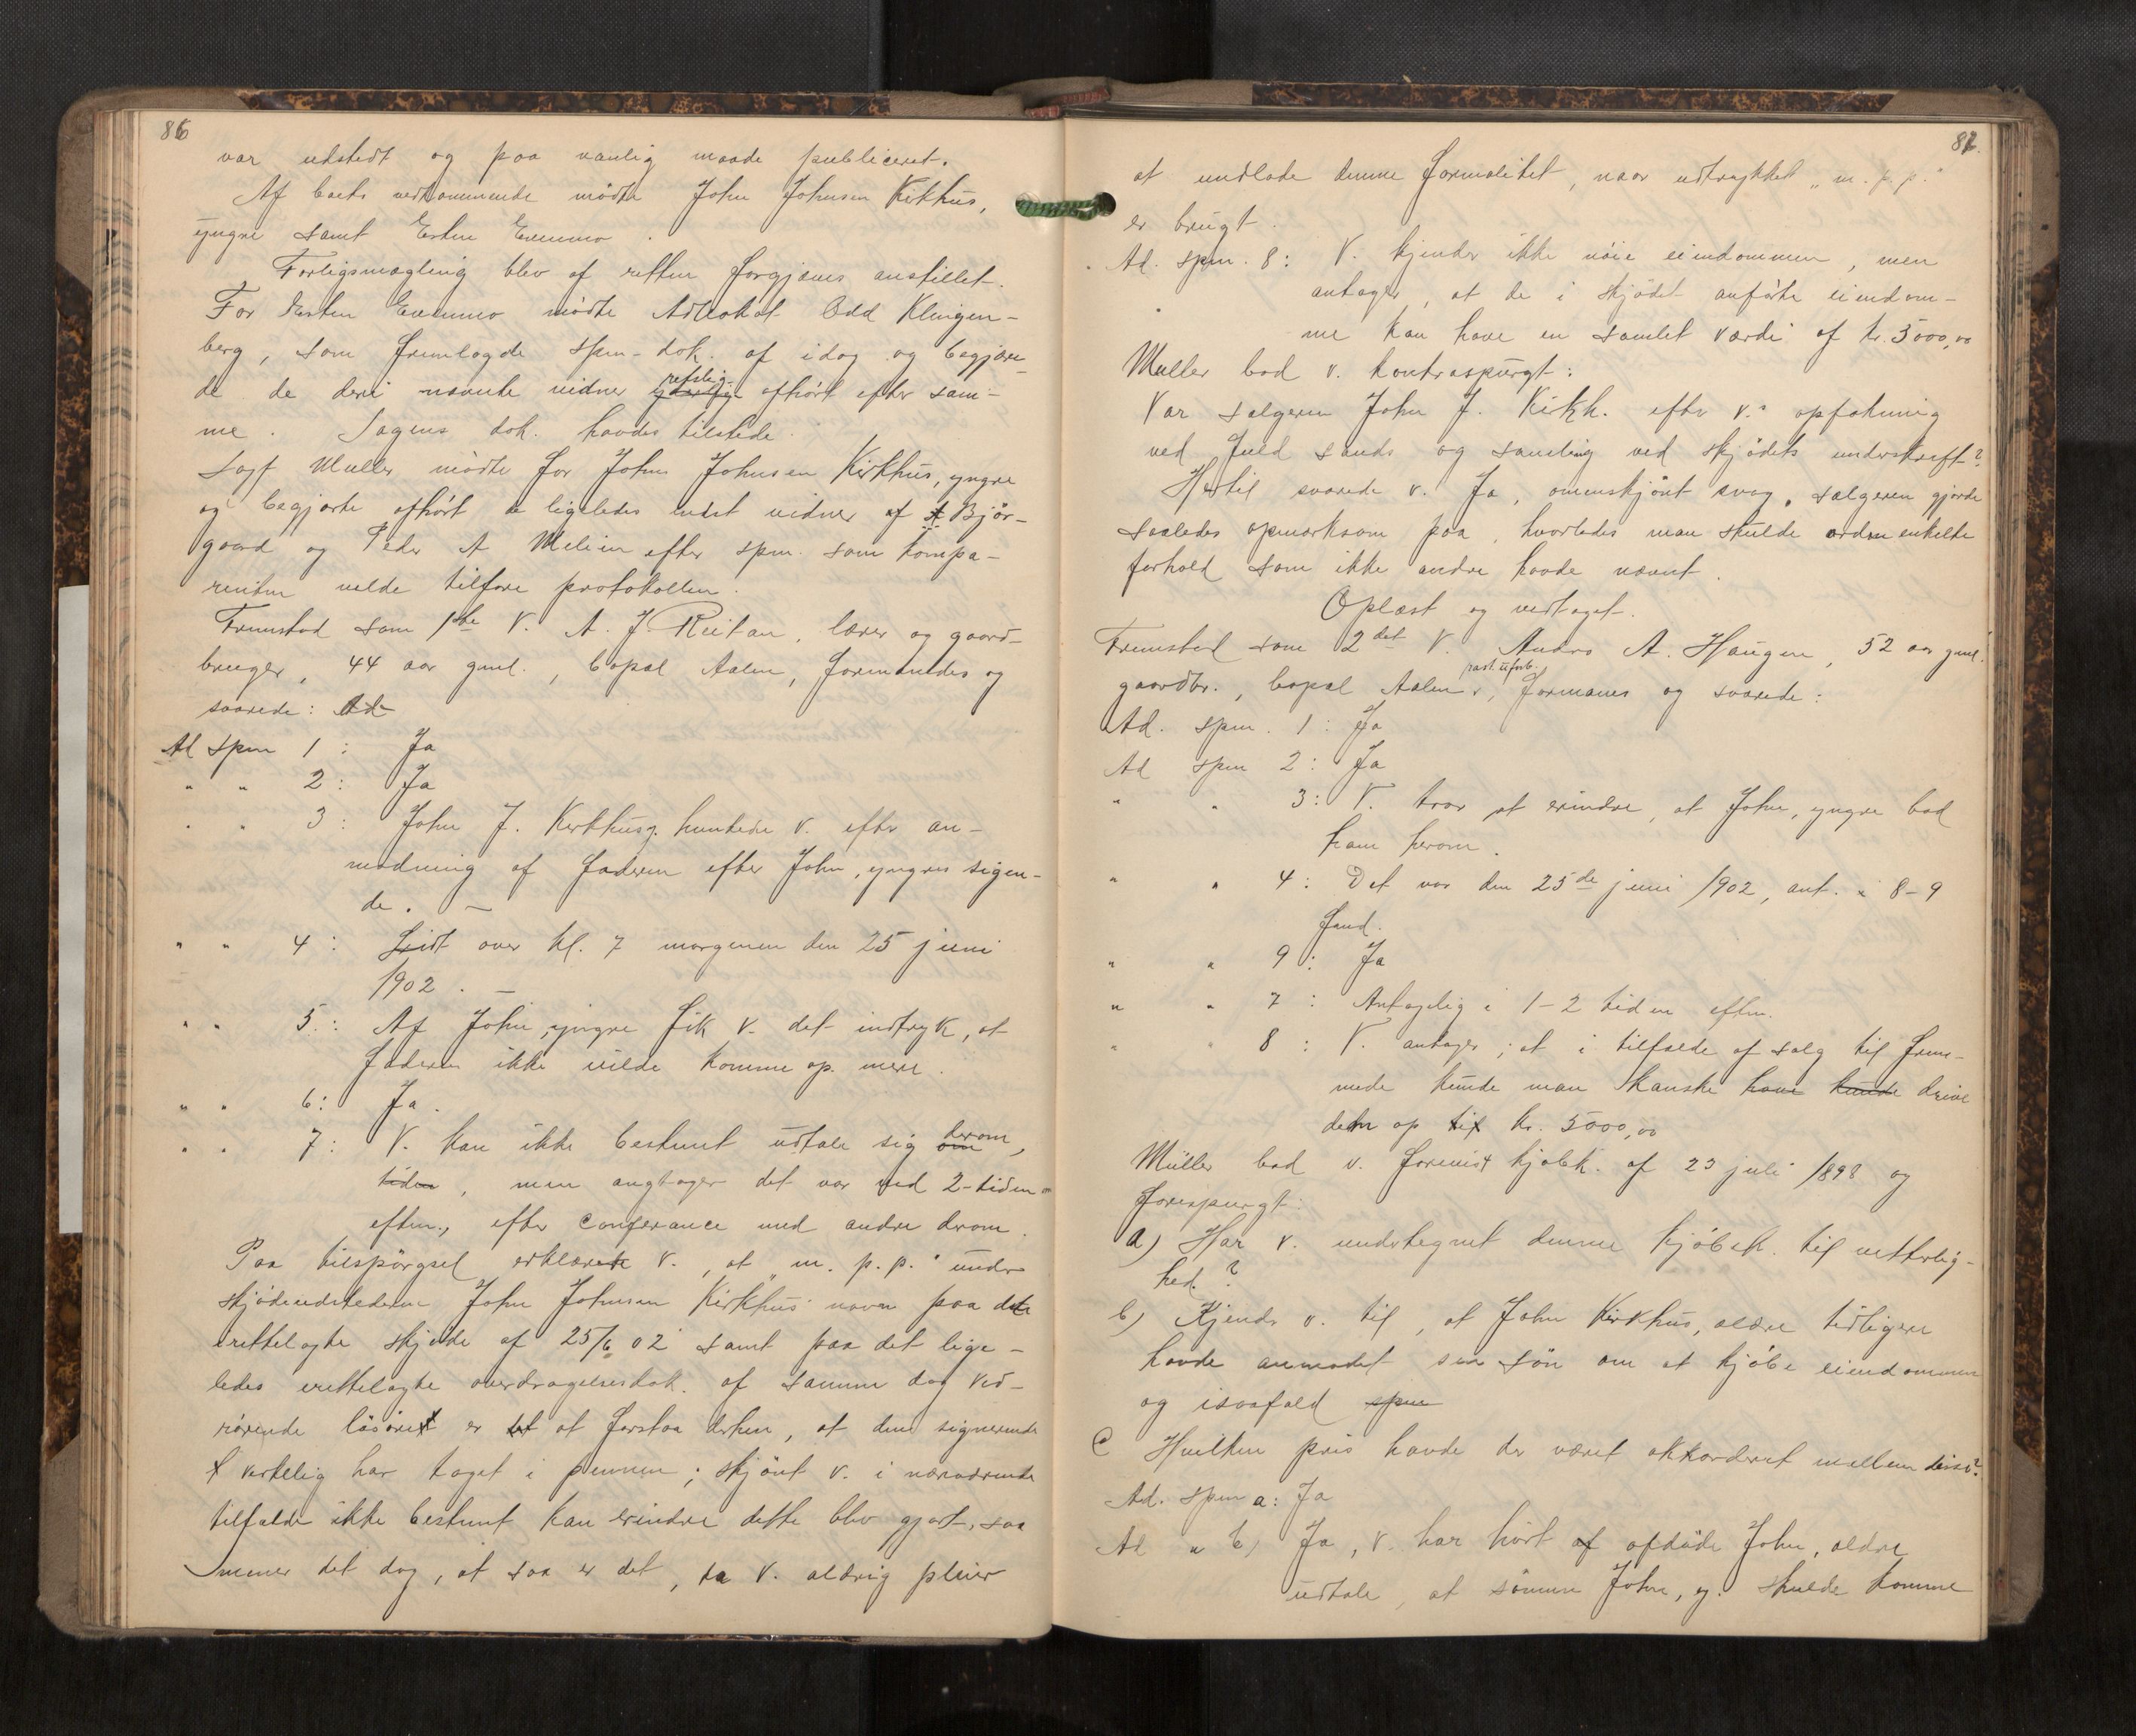 86
var udstedt og paa vanlig maade publiceret.
Af boets vedkommende mødte John Johnsen Kirkhus,
yngre samt Esten Evenmo.
Forligsmægling blev af retten forgjæves anstillet.
For Esten Evenmo mødte Advokat Odd Klingen-
berg, som fremlagde spm-dok. af idag og begjære-
de de deri nævnte vidner retslig afhørt efter sam-
me. Sagens dok. havdes tilstede.
Sagf Müller mødte for John Johnsen Kirkhus, yngre
og begjærte afhørt de ligeledes indst vidner af A Bjør-
gaard og Peder A Melien efter spm. som kompa-
renten vilde tilføre protokollen.
Fremstod som 1ste V. A. J. Reitan, lærer og gaard-
bruger, 44 aar gml., bopæl Aalen, formanedes og
svarede: Ad
Ad spm 1: Ja
" " 2: Ja
" " 3: John J. Kirkhus y. hentede V. efter an-
modning af faderen efter John, yngres sigen-
de. —
" " 4: Lidt over kl. 7 morgenen den 25 juni
1902. —
" " 5: Af John, yngre fik V. det indtryk, at
faderen ikke vilde komme op mere.
" " 6: Ja.
" " 7: V. kan ikke bestemt udtale sig om derom,
tiden, men angtager det var ved 2-tiden
eftm., efter conferance med andre derom.
Paa tilspørgsel erklærete V., at "m. p. p." under
skjødeudstederen John Johnsen Kirkhus' navn paa det
irettelagte skjøde af 25/6 02 samt paa det lige-
ledes irettelagte overdragelsesdok. af samme dag ved-
rørende løsøret er det at forstaa derhen, at den signerende
virkelig har taget i pennen; skjønt V. i nærværende
tilfælde ikke bestemt kan erindre dette blev gjort, saa
mener det dog, at saa er det, da V. aldrig pleier
87.
at undlade denne formalitet, naar udtrykket "m. p. p."
er brugt.
Ad. spm. 8: V. kjender ikke nøie eiendommen, men
antager, at de i skjødet anførte eiendom-
me kan have en samlet værdi af kr. 5000,00
Müller bad V. kontraspurgt:
Var sælgeren John J. Kirkh. efter V.s opfatning
ved fuld sands og samling ved skjødets underskrift?
Hertil svarede V. Ja, omenskjønt svag. Sælgeren gjorde
saaledes opmerksom paa, hvorledes man skulde ordne enkelte
forhold som ikke andre havde nævnt.
Oplæst og vedtaget.
Fremstod som 2det V. Anders A. Haugen, 52 aar gml.
gaardbr., bopæl Aalen, formanes og svarede:
Ad. spm. 1: Ja
Ad spm 2: Ja
" " 3: V. tror at erindre, at John, yngre bad
ham herom.
" " 4: Det var den 25de juni 1902, ant. i 8-9
fmd.
" " 9: Ja
" " 7: Antagelig i 1-2 tiden eftm.
" " 8: V. antager, at i tilfælde af salg til frem-
mede kunde man kanske have kunde drive
dem op til kr. 5000,00
Müller bad V. forevist kjøbek. af 23 juli 1898 og
forespurgt:
a) Har V. undertegnet denne kjøbek. til vitterlig-
hed?
b) Kjender V. til, at John Kirkhus, ældre tidligere
havde anmodet sin søn om at kjøbe eiendommen
og isaafald spm
c Hvilken pris havde der været akkorderet mellem disse?
Ad. spm a: Ja
Ad " b) Ja, V. har hørt af afdøde John, ældre
udtale, at sønnen John, y. skulde komme